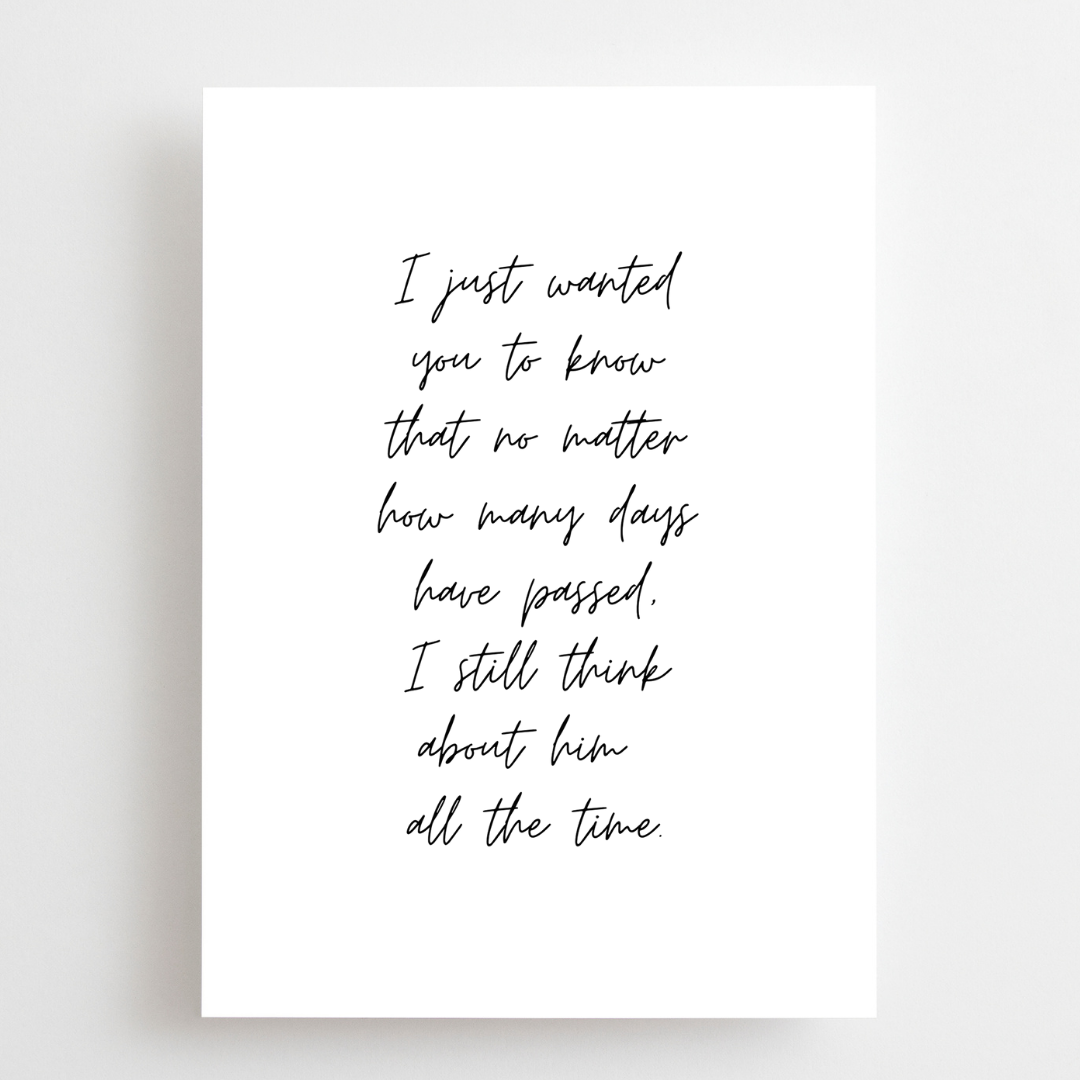 I just wanted
you to know
that no matter
how many days
have passed,
I still think
about him
all the time.